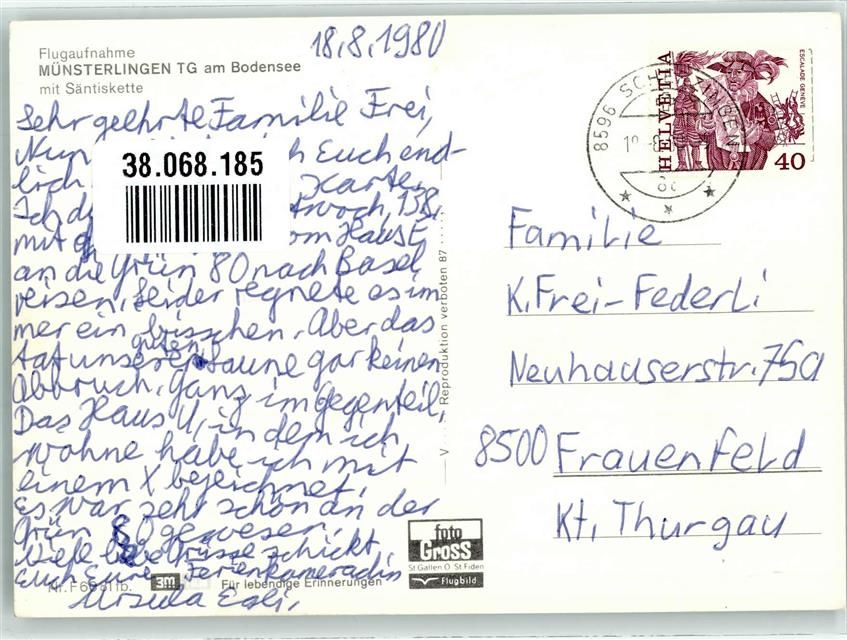 Flugaufnahme
MÜNSTERLINGEN TG am Bodensee
mit Säntiskette
18.8.1980
Sehr geehrte Familie Frei,
Nun ich Euch end-
lich Karte.
Ich d twoch, 138.
mit d om Haus E
an die Grün 80 nach Basel
reisen, leider regnete es im
mer ein bisschen. Aber das
tat unserer guten Laune gar keinen
Abbruch, ganz im Gegenteil,
Das Haus U, in dem ich
wohne habe ich mit
einem X bezeichnet,
Es war sehr schön an der
Grün 80 gewesen.
Viele liebe Grüsse schickt
Euch Eure Ferienkameradin
Ursula Egli.
38.068.185
V Reproduktion verboten 87
Nr. F
3m
Für lebendige Erinnerungen
foto
GROSS
St Gallen O St Fiden
Flugbild
8596 SCH
HELVETIA
ESCALADE GENÈVE
40
Familie
K. Frei-Federli
Neuhauserstr. 75a
8500 Frauenfeld
Kt. Thurgau